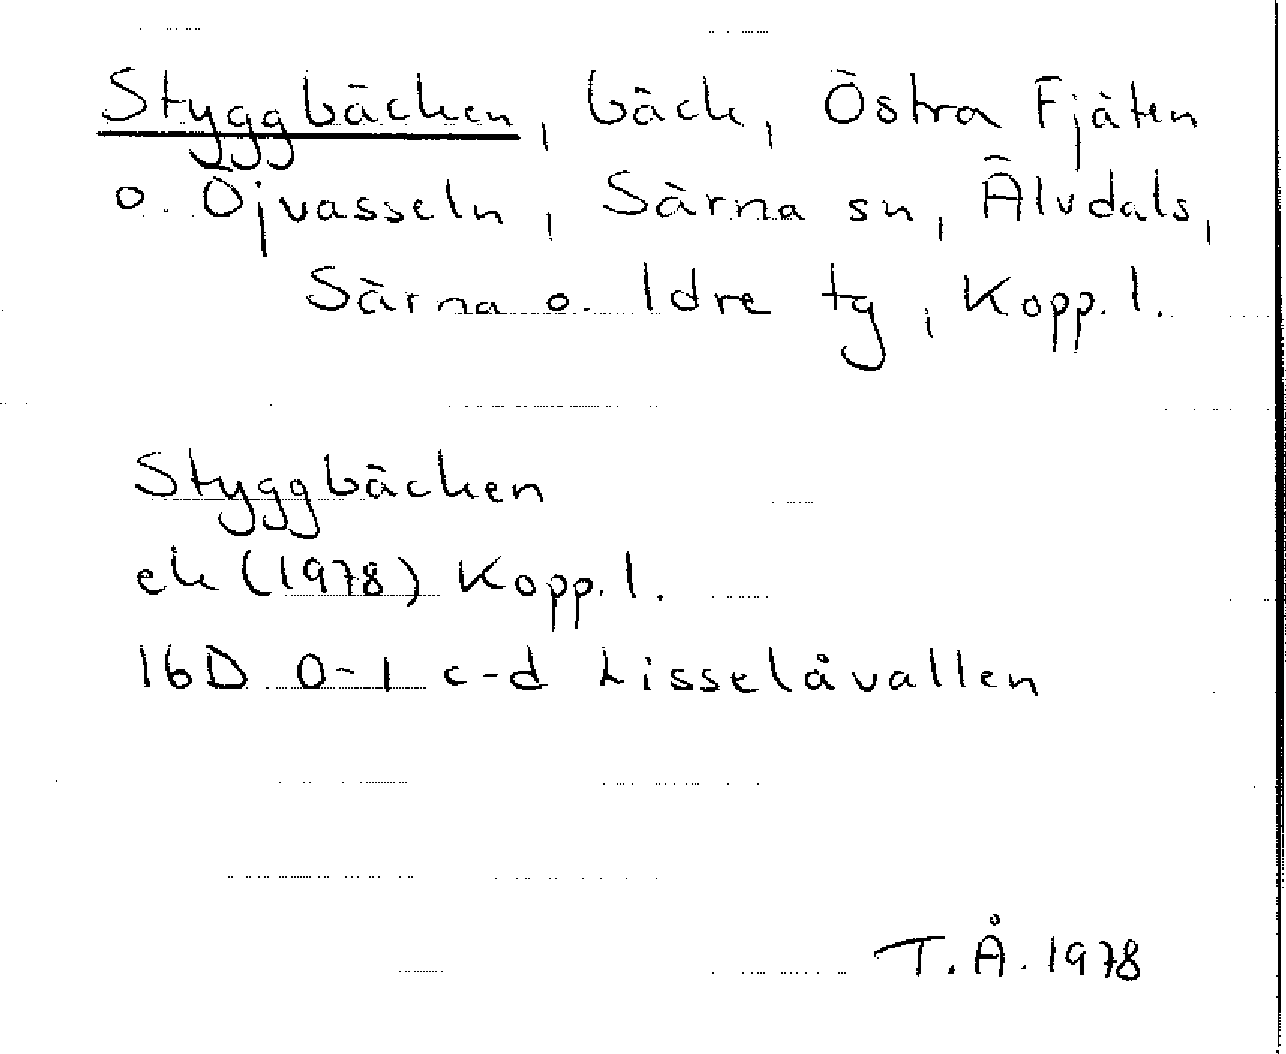 Styggbäcken, bäck, Östra Fjäten
o. Öjvasseln, Särna sn, Älvdals,
Särna o. Idre tg, Kopp. l.
Styggbäcken
ek (1978) Kopp. l.
16D 0-1 c-d Lisselåvallen
T.Å. 1978